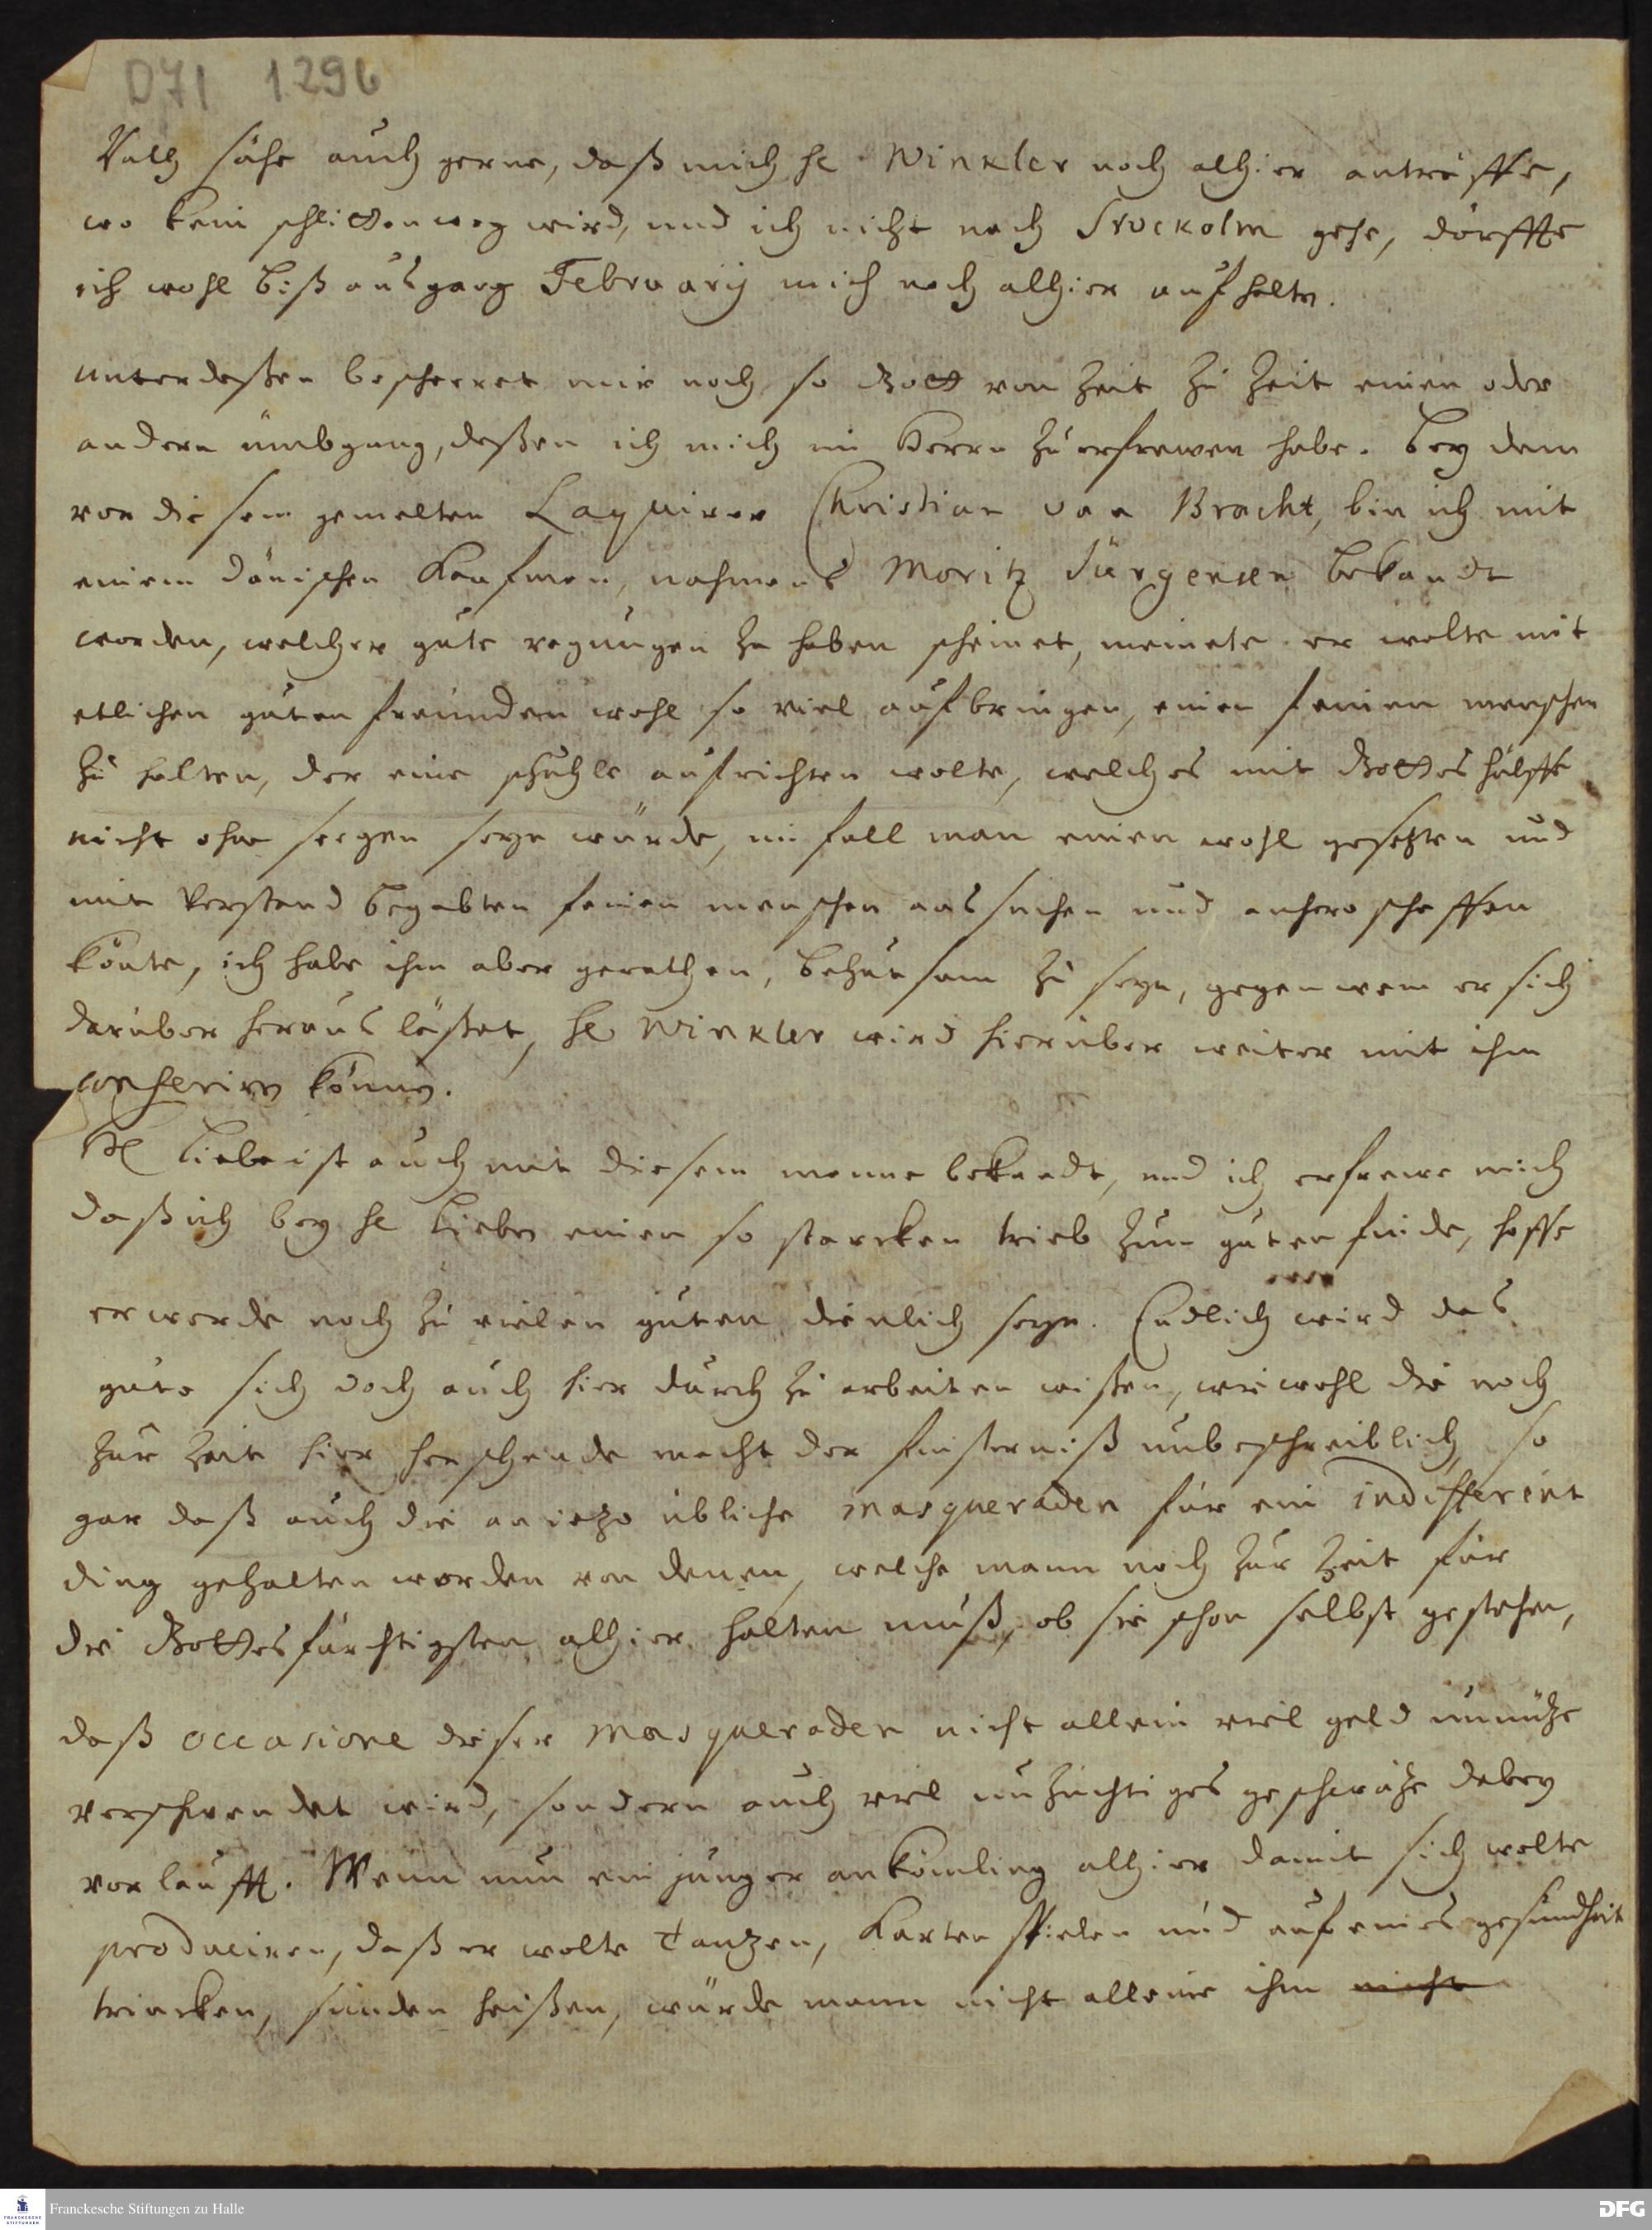 D71 1296
sähe auch gerne, daß mich He Winkler noch alhier anträffe,
wo kein schlittenweg wird, und ich nicht nach Stockolm gehe, dörffte
ich wohl biß ausgang Februarij mich noch alhier aufhalten.
unterdeßen bescheeret mir noch so Gott von Zeit zu Zeit einen oder
andern ümbgang, deßen ich mich im Herrn zu erfrewen habe. bey dem
von diesem gemelten Laquirer Christian van Bracht, bin ich mit
einem dänischen Kaufman, nahmens Moritz Jürgensen bekandt
worden, welcher gute regungen zu haben scheinet, meinete er wolte mit
etlichen guten freunden wohl so viel aufbringen, einen feinen menschen
zu halten, der eine schuhle aufrichten wolte, welches mit Gottes hülffe
nicht ohne seegen seyn würde, im fall man einen wohl gesetzten und
mit Verstand begabten feinen menschen aussuchen und anhero schaffen
könte, ich habe ihm aber gerathen, behutsam zu seyn, gegen wem er sich
darüber heraus läßet, He Winkler wird hierüber weiter mit ihm
conferiren können.
He Liebe ist auch mit diesem manne bekandt, und ich erfrewe mich
daß ich bey He Lieben einen so starcken trieb zum guten finde, hoffe
er werde noch zu vielen guten dienlich seyn. Endlich wird das
gute sich doch auch hier durch zu arbeiten wißen, wiewohl die noch
zur Zeit hier herschende macht der finsterniß unbeschreiblich, so
gar daß auch die anietzo übliche masqueraden für ein indifferent
ding gehalten worden von denen, welche mann noch zur Zeit für
die Gottesfürchtigsten alhier halten muß, ob sie schon selbst gestehen,
daß occasione dieser masqueraden nicht allein viel geld unnütze
verschwendet wird, sondern auch viel unzüchtiges geschwätze dabey
vorlaufft. Wenn nun ein junger ankömling alhier damit sich wolte
produciren, daß er wolte tantzen, Karten spielen und auf eines gesundheit
trincken, sünden heißen, würde mann nicht alleine ihm nicht
Franckesche Stiftungen zu Halle
DFG